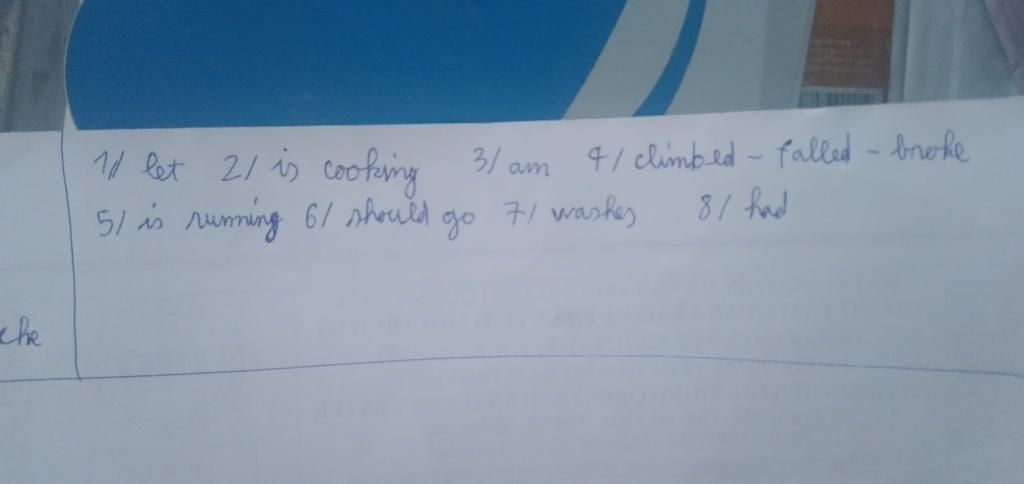 1/ let 2/ is cooking 3/ am 4/ climbed - falled - broke
5/ is running 6/ should go 7/ washes 8/ had
che